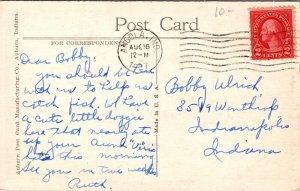 10-
Post Card
FOR CORRESPONDENCE
ANGOLA, IND.
AUG 16
12-M
Auburn Post Card Manufacturing Co. Auburn, Indiana.
Made in U.S.A.
UNITED STATES POSTAGE
2 CENTS 2
Dear Bobby:
you should be here
with us to help us
catch fish. We have
a cute little doggie
here that nearly ate
up your Aunt
this morning
see you in two weeks
Ruth.
Bobby Ulrich,
3549 Winthrop
Indianapolis
Indiana